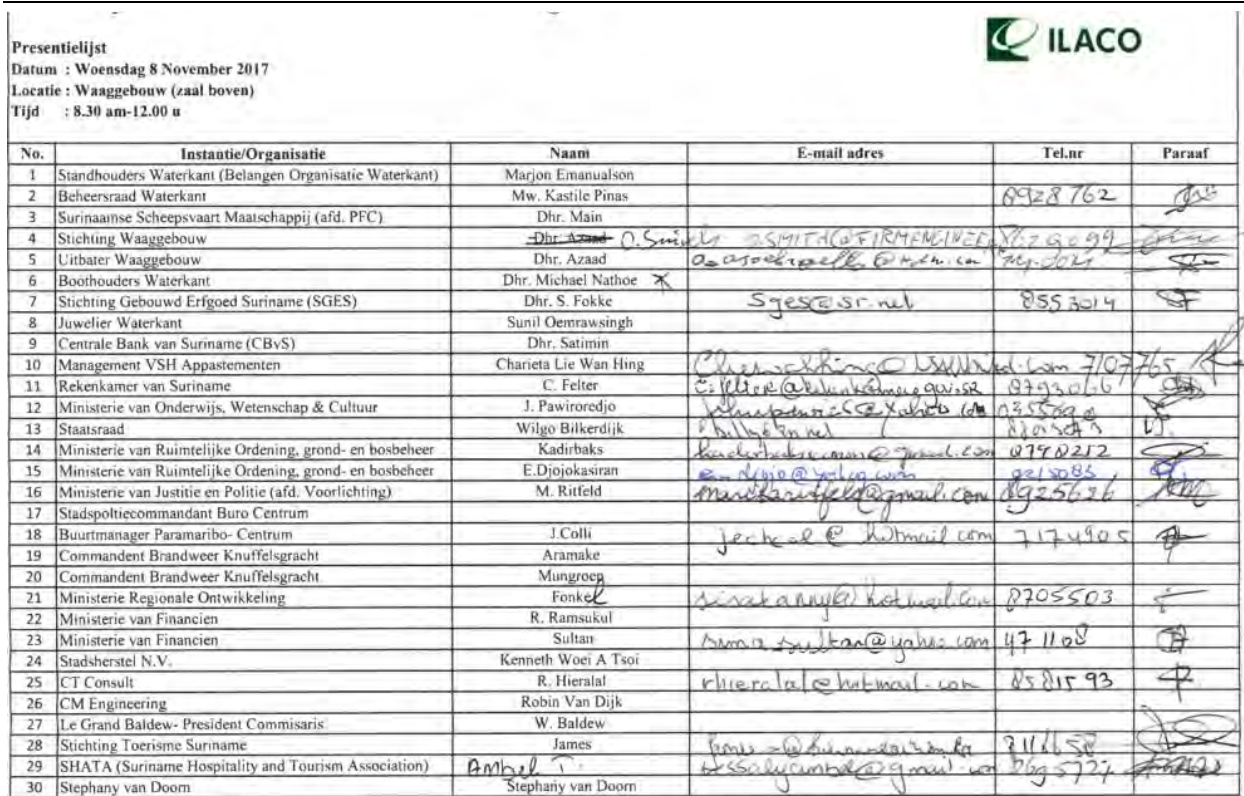 ILACO
Presentielijst
Datum : Woensdag 8 November 2017
Locatie : Waaggebouw (zaal boven)
Tijd : 8.30 am-12.00 u
No. Instantie/Organisatie Naam E-mail adres Tel.nr Paraaf
1 Standhouders Waterkant (Belangen Organisatie Waterkant) Marjon Emanualson
2 Beheersraad Waterkant Mw. Kastile Pinas 8928762
3 Surinaamse Scheepsvaart Maatschappij (afd. PFC) Dhr. Main
4 Stichting Waaggebouw Dhr. Azaad
5 Uitbater Waaggebouw Dhr. Azaad
6 Boothouders Waterkant Dhr. Michael Nathoe
7 Stichting Gebouwd Erfgoed Suriname (SGES) Dhr. S. Fokke sges@sr.net 8553014
8 Juwelier Waterkant Sunil Oemrawsingh
9 Centrale Bank van Suriname (CBvS) Dhr. Satimin
10 Management VSH Appastementen Charieta Lie Wan Hing 7107765
11 Rekenkamer van Suriname C. Felter
12 Ministerie van Onderwijs, Wetenschap & Cultuur J. Pawiroredjo
13 Staatsraad Wilgo Bilkerdijk
14 Ministerie van Ruimtelijke Ordening, grond- en bosbeheer Kadirbaks
15 Ministerie van Ruimtelijke Ordening, grond- en bosbeheer E.Djojokasiran
16 Ministerie van Justitie en Politie (afd. Voorlichting) M. Ritfeld 8925626
17 Stadspoltiecommandant Buro Centrum
18 Buurtmanager Paramaribo- Centrum J.Colli 7174905
19 Commandent Brandweer Knuffelsgracht Aramake
20 Commandent Brandweer Knuffelsgracht Mungroep
21 Ministerie Regionale Ontwikkeling Fonkel 8705503
22 Ministerie van Financien R. Ramsukul
23 Ministerie van Financien Sultan
24 Stadsherstel N.V. Kenneth Woei A Tsoi
25 CT Consult R. Hieralal rhieralal@hotmail.com 8581593
26 CM Engineering Robin Van Dijk
27 Le Grand Baldew- President Commisaris W. Baldew
28 Stichting Toerisme Suriname James
29 SHATA (Suriname Hospitality and Tourism Association) Ambel T.
30 Stephany van Doorn Stephany van Doorn